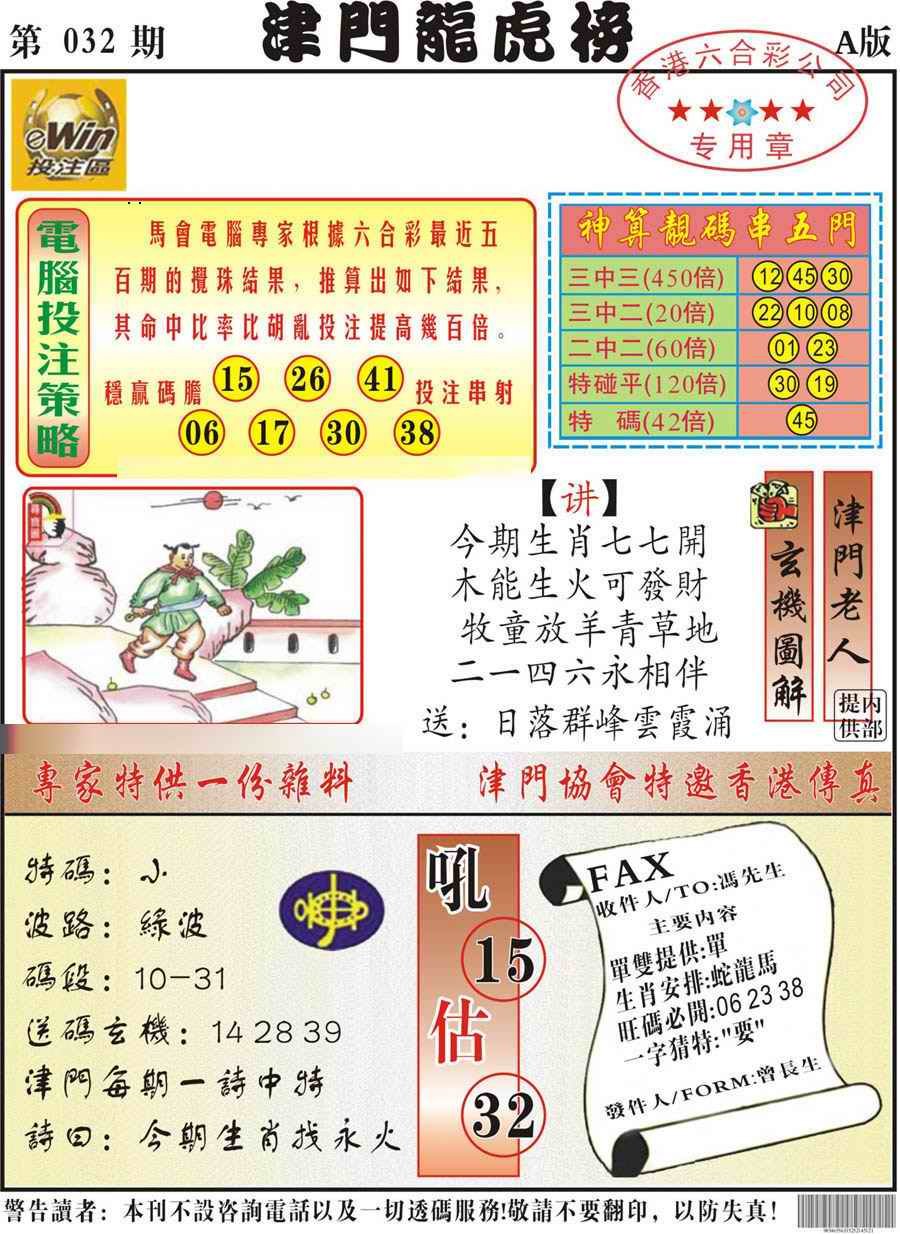 第 032 期
津門龍虎榜
A版
香港六合彩公司
专用章
eWin
投注區
電腦投注策略
馬會電腦專家根據六合彩最近五
百期的攪珠結果，推算出如下結果，
其命中比率比胡亂投注提高幾百倍。
穩贏碼膽 15 26 41 投注串射
06 17 30 38
神算靚碼串五門
三中三(450倍) 12 45 30
三中二(20倍) 22 10 08
二中二(60倍) 01 23
特碰平(120倍) 30 19
特 碼(42倍) 45
【讲】
今期生肖七七開
木能生火可發財
牧童放羊青草地
二一四六永相伴
送：日落群峰雲霞涌
玄機圖解
津門老人
内部提供
專家特供一份雜料
津門協會特邀香港傳真
特碼：小
波路：綠波
碼段：10-31
送碼玄機：14 28 39
津門每期一詩中特
詩曰：今期生肖找永火
吼
15
估
32
FAX
收件人/TO:馮先生
主要内容
單雙提供:單
生肖安排:蛇龍馬
旺碼必開:06 23 38
一字猜特:"要"
發件人/FORM:曾長生
警告讀者：本刊不設咨詢電話以及一切透碼服務!敬請不要翻印，以防失真!